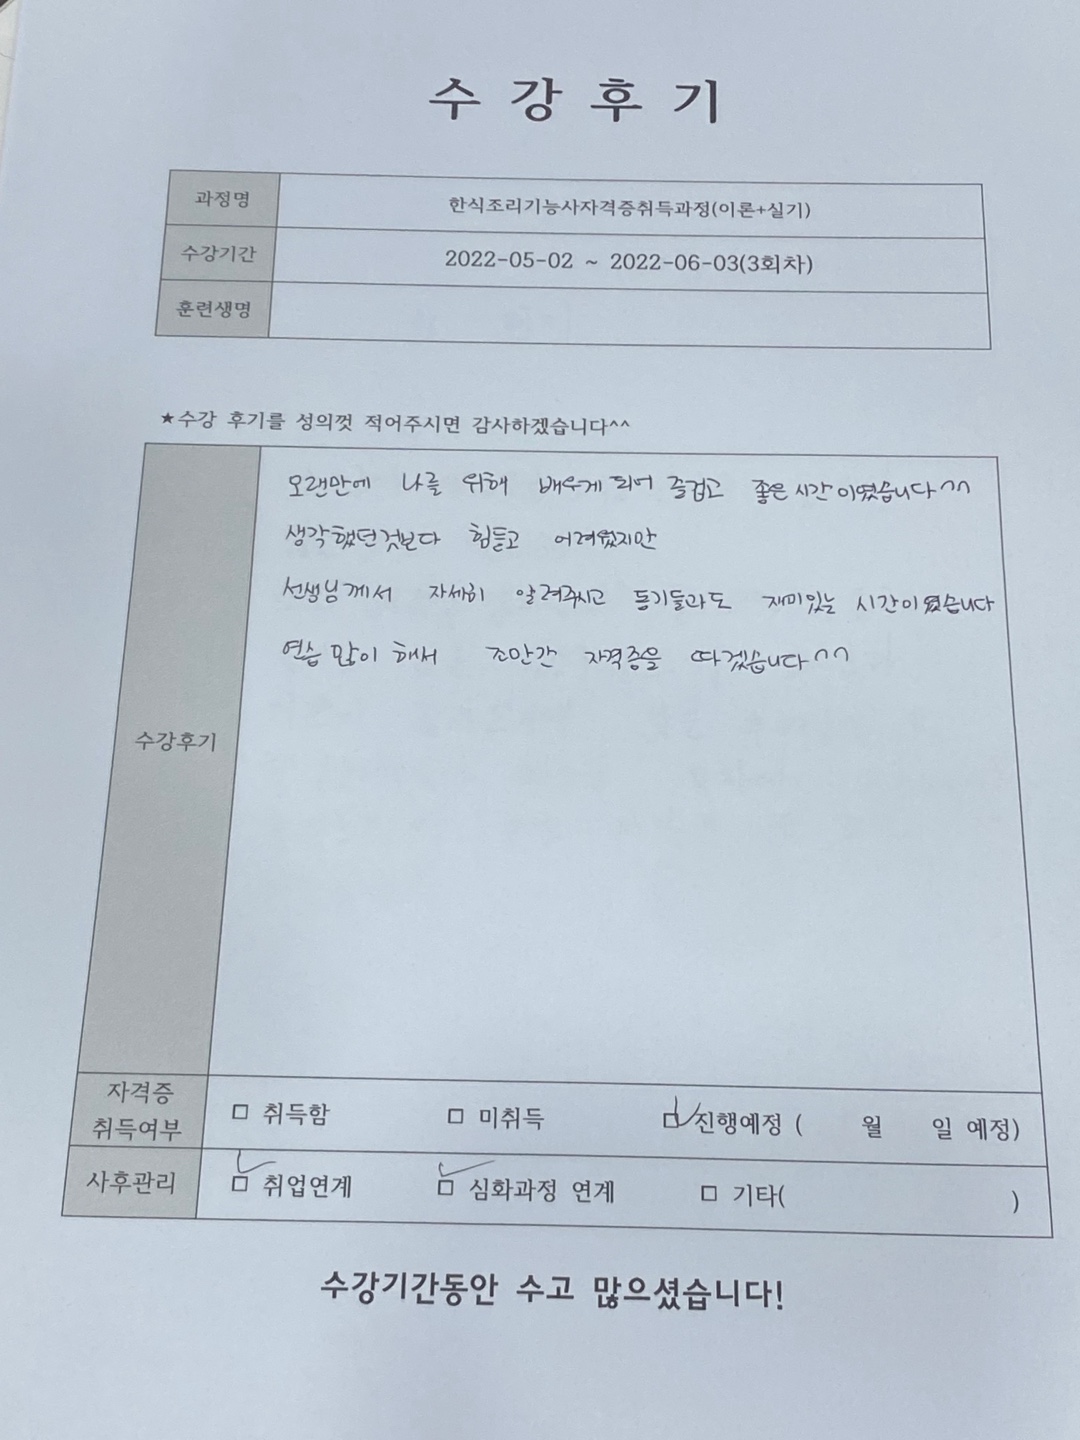 수 강 후 기
과정명 한식조리기능사자격증취득과정(이론+실기)
수강기간 2022-05-02 ~ 2022-06-03(3회차)
훈련생명
★수강 후기를 성의껏 적어주시면 감사하겠습니다^^
수강후기
오랜만에 나를 위해 배우게 되어 즐겁고 좋은 시간이였습니다^^
생각했던것보다 힘들고 어려웠지만
선생님께서 자세히 알려주시고 동기들과도 재미있는 시간이였습니다
연습 많이 해서 조만간 자격증을 따겠습니다^^
자격증
취득여부 □ 취득함 □ 미취득 ☑ 진행예정 ( 월 일 예정)
사후관리 ☑ 취업연계 ☑ 심화과정 연계 □ 기타( )
수강기간동안 수고 많으셨습니다!